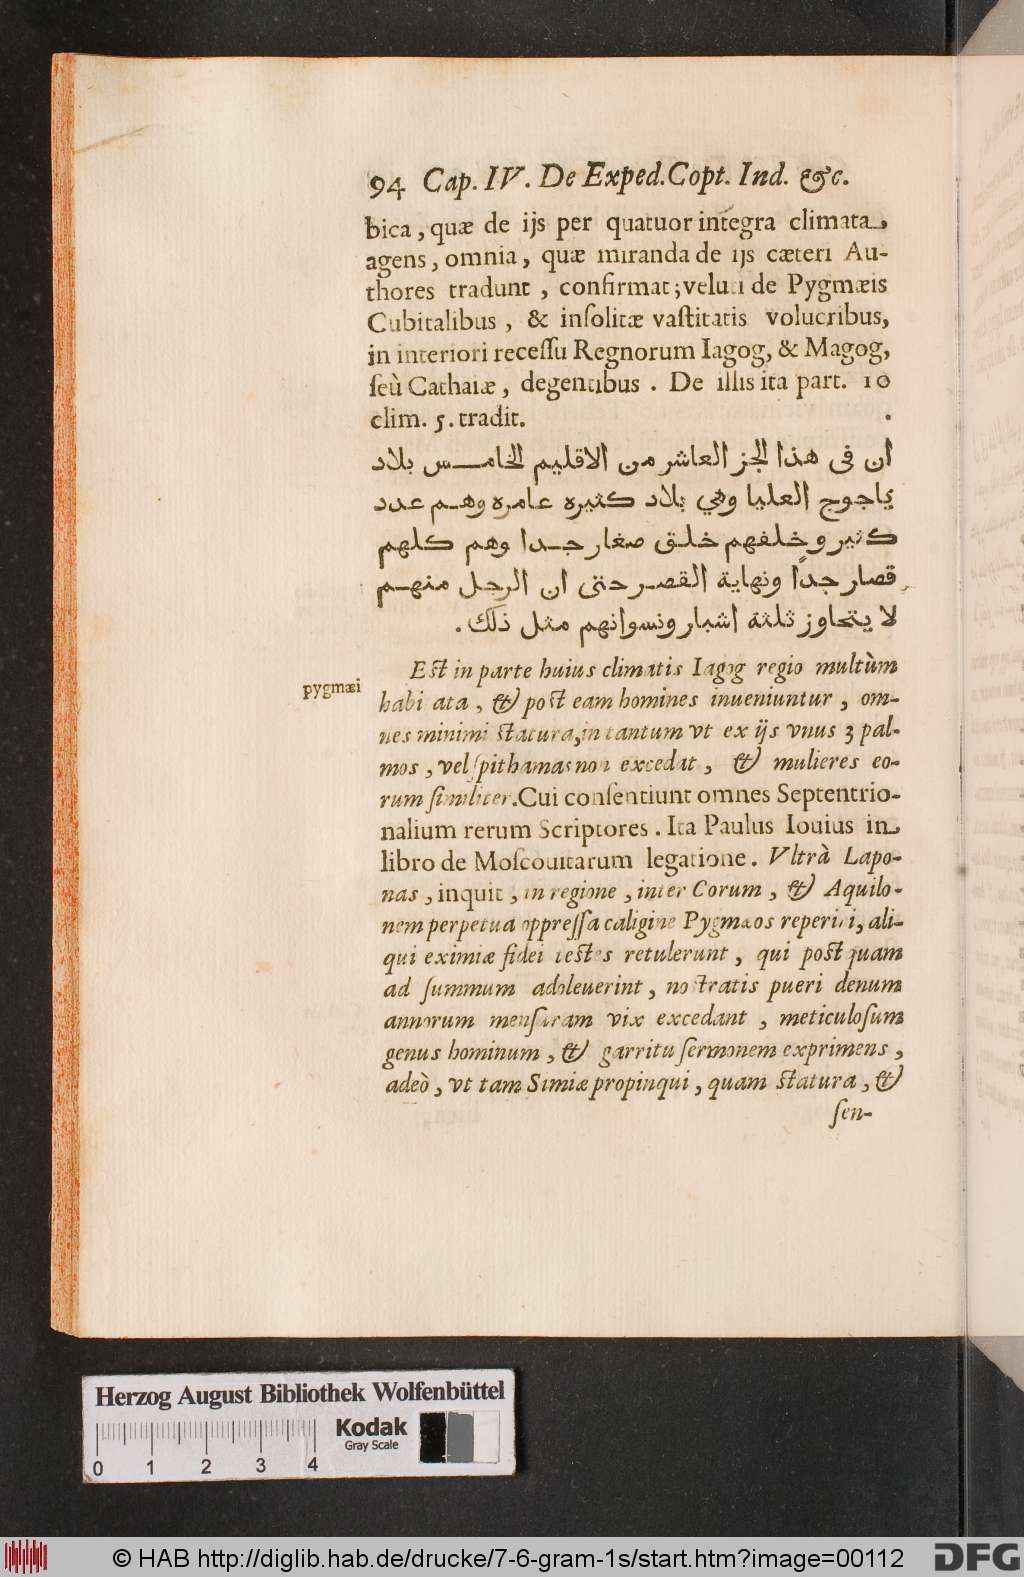 94 Cap. IV. De Exped. Copt. Ind. &c.
bica, quæ de ijs per quatuor integra climata,
agens, omnia, quæ miranda de ijs cæteri Au-
thores tradunt, confirmat; veluti de Pygmæis
Cubitalibus, & insolitæ vastitatis volucribus,
in interiori recessu Regnorum Iagog, & Magog,
seù Cathaiæ, degentibus. De illis ita part. 10
clim. 5. tradit.
ان فى هذا الجز العاشر من الاقليم الخامس بلاد
ياجوج العليا وهي بلاد كثيره عامره وهم عدد
كثير وخلفهم خلق صغار جدا وهم كلهم
قصار جداً ونهاية القصر حتى ان الرجل منهم
لا يتجاوز ثلثة اشبار ونسوانهم مثل ذلك.
pygmæi
Est in parte huius climatis Iagog regio multùm
habi ata, & post eam homines inueniuntur, om-
nes minimi statura, in tantum vt ex ijs vnus 3 pal-
mos, vel spithamas non excedat, & mulieres eo-
rum similiter. Cui consentiunt omnes Septentrio-
nalium rerum Scriptores. Ita Paulus Iouius in
libro de Moscouitarum legatione. Vltrà Lapo-
nas, inquit, in regione, inter Corum, & Aquilo-
nem perpetua oppressa caligine Pygmæos reperiri, ali-
qui eximiæ fidei testes retulerunt, qui post quam
ad summum adoleuerint, nostratis pueri denum
annorum mensuram vix excedant, meticulosum
genus hominum, & garritu sermonem exprimens,
adeò, vt tam Simiæ propinqui, quam statura, &
sen-
Herzog August Bibliothek Wolfenbüttel
Kodak
Gray Scale
0 1 2 3 4
© HAB http://diglib.hab.de/drucke/7-6-gram-1s/start.htm?image=00112
DFG